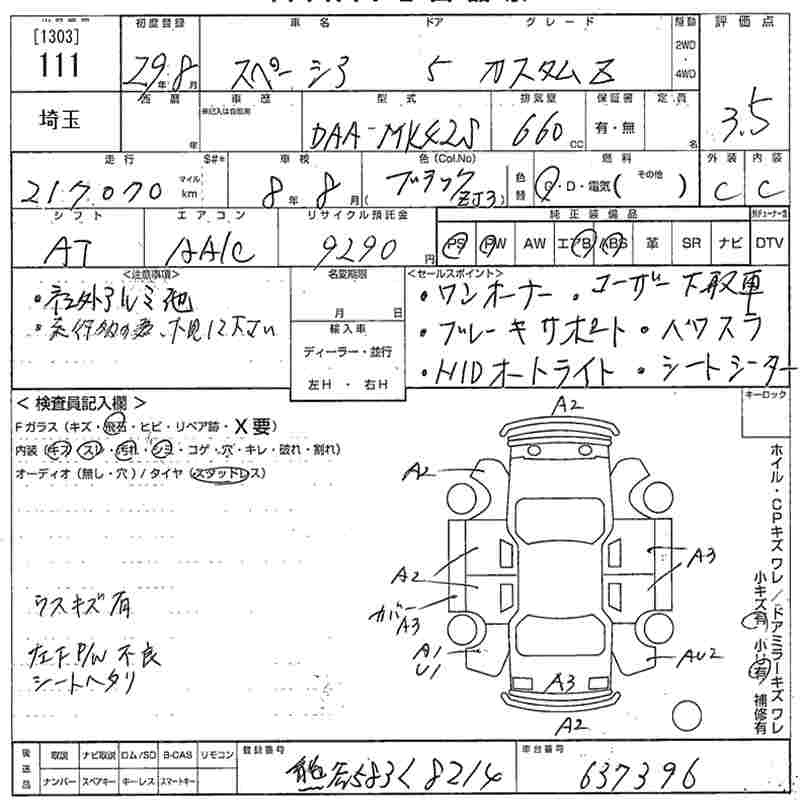 [1303]
111
埼玉
初度登録
29年8月
車名
スペーシア
ドア
5
グレード
カスタムZ
駆動
2WD
4WD
評価点
3.5
車歴
※記入は自家用
年
型式
DAA-MK42S
排気量
660cc
保証書
有・無
定員
名
走行
217070
マイル
km
S#*
車検
8年8月
色(Col.No)
ブラック
(ZJ3)
色替
燃料
G・D・電気( その他 )
外装
C
内装
C
シフト
AT
エアコン
AA/C
リサイクル預託金
9290円
純正装備品
PS
PW
AW
エアB
ABS
革
SR
ナビ
DTV
<注意事項>
・社外アルミ他
・走行多の為、下見に下さい
名変期限
月 日
輸入車
ディーラー・並行
左H ・ 右H
<セールスポイント>
・ワンオーナー ・ユーザー下取車
・ブレーキサポート・パワスラ
・HIDオートライト・シートヒーター
キーロック
<検査員記入欄>
Fガラス(キズ・飛石・ヒビ・リペア跡・X要)
内装(キズ・スレ・汚れ・シミ・コゲ・穴・キレ・破れ・割れ)
オーディオ(無し・穴)/タイヤ(スタッドレス)
ウスキズ有
左F P/W 不良
シートヘタリ
A2
A2
A2
カバーA3
A1
U1
A3
AU2
A3
A2
ホイル・CPキズ ワレ/ドアミラーキズ ワレ
小キズ有 小U有 補修有
後送品
取説
ナビ取説
ロム/SD
B-CAS
リモコン
ナンバー
スペアキー
キーレス
スマートキー
登録番号
熊谷583く8214
車台番号
637396